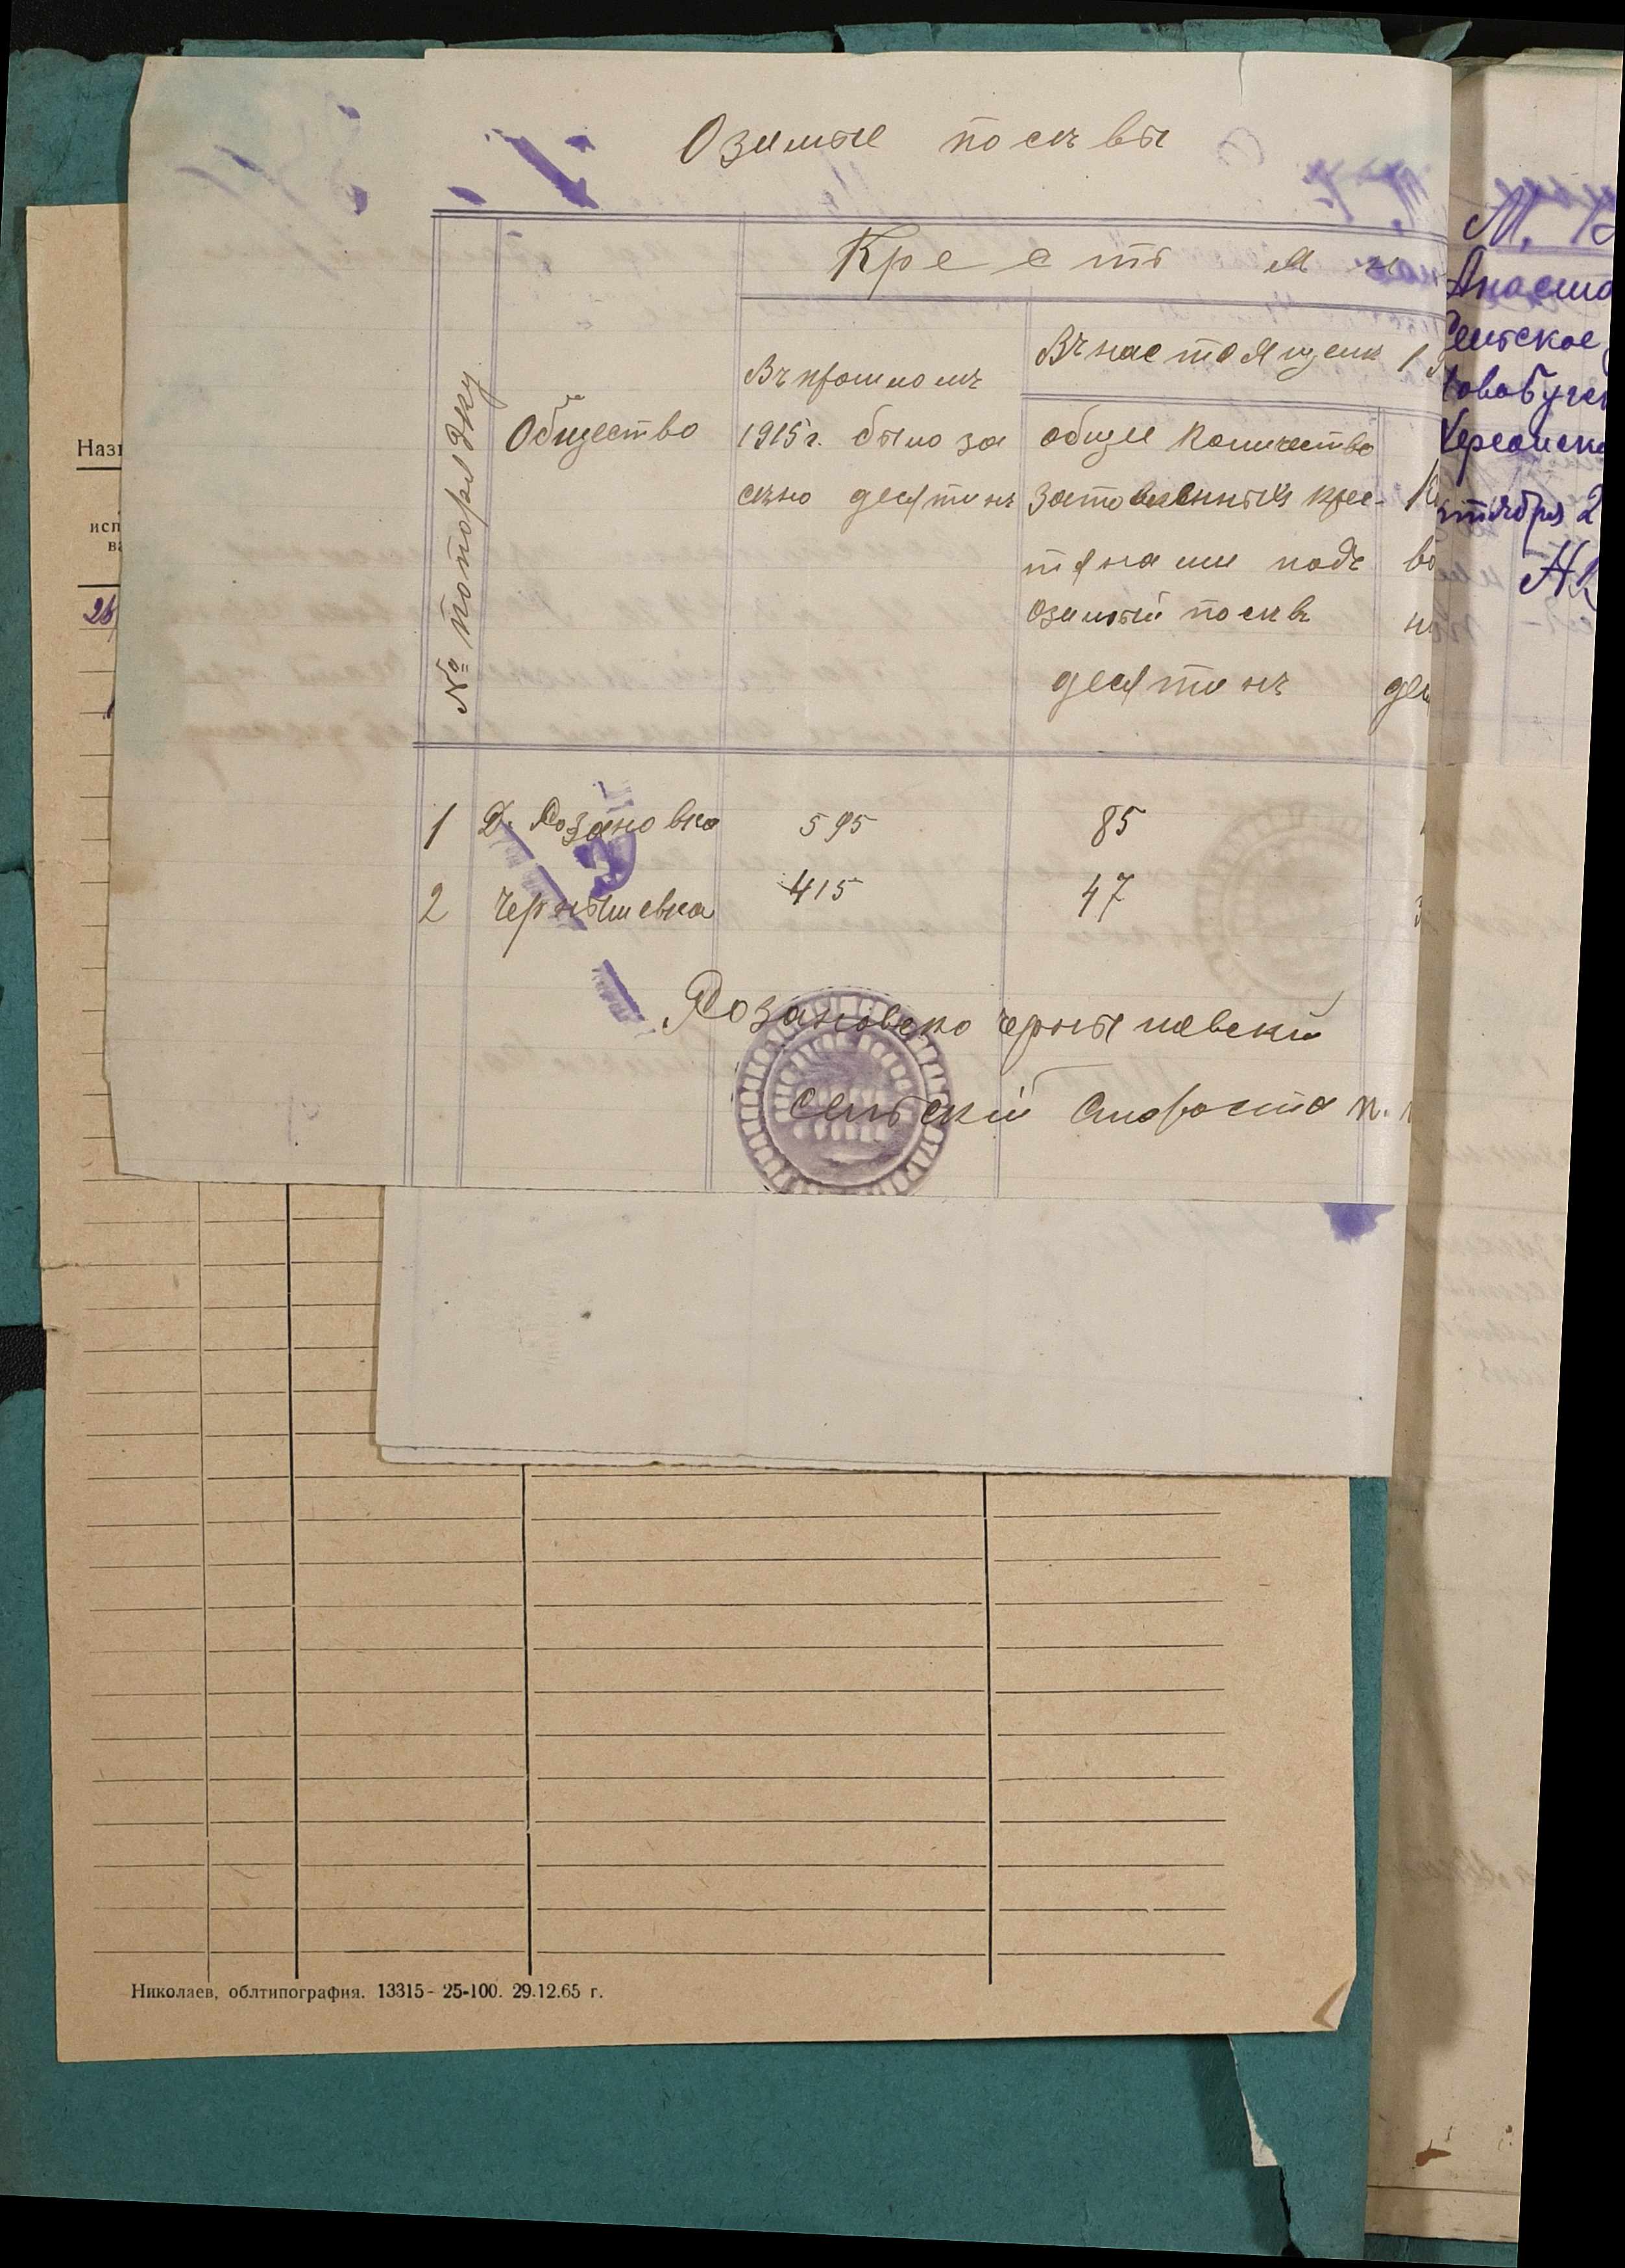 Озимые посѣвы
Крестьян
№ по порядку
Общество
Въ прошломъ
1915 г. было за
сѣно десятинъ
Въ настоящемъ 1
общее количество
заготовленный крес-
тянами подъ
озимый посѣвъ
десятинъ
1 Д. Розановка 595 85
2 Чернышевка 415 47
Розановско Чернышевский
Сельский Староста
М.
Анаста
Сельское
Новобуг
Херсонск
тября 2
Назв
исп
ва
26
Николаев, облтипография. 13315-25-100. 29.12.65 г.